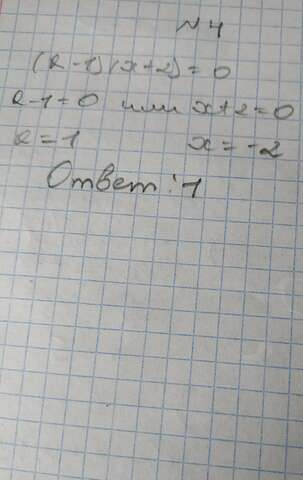 N 4
(k-1)(x+2)=0
k-1=0 или x+2=0
k=1 x=-2
Ответ: 1